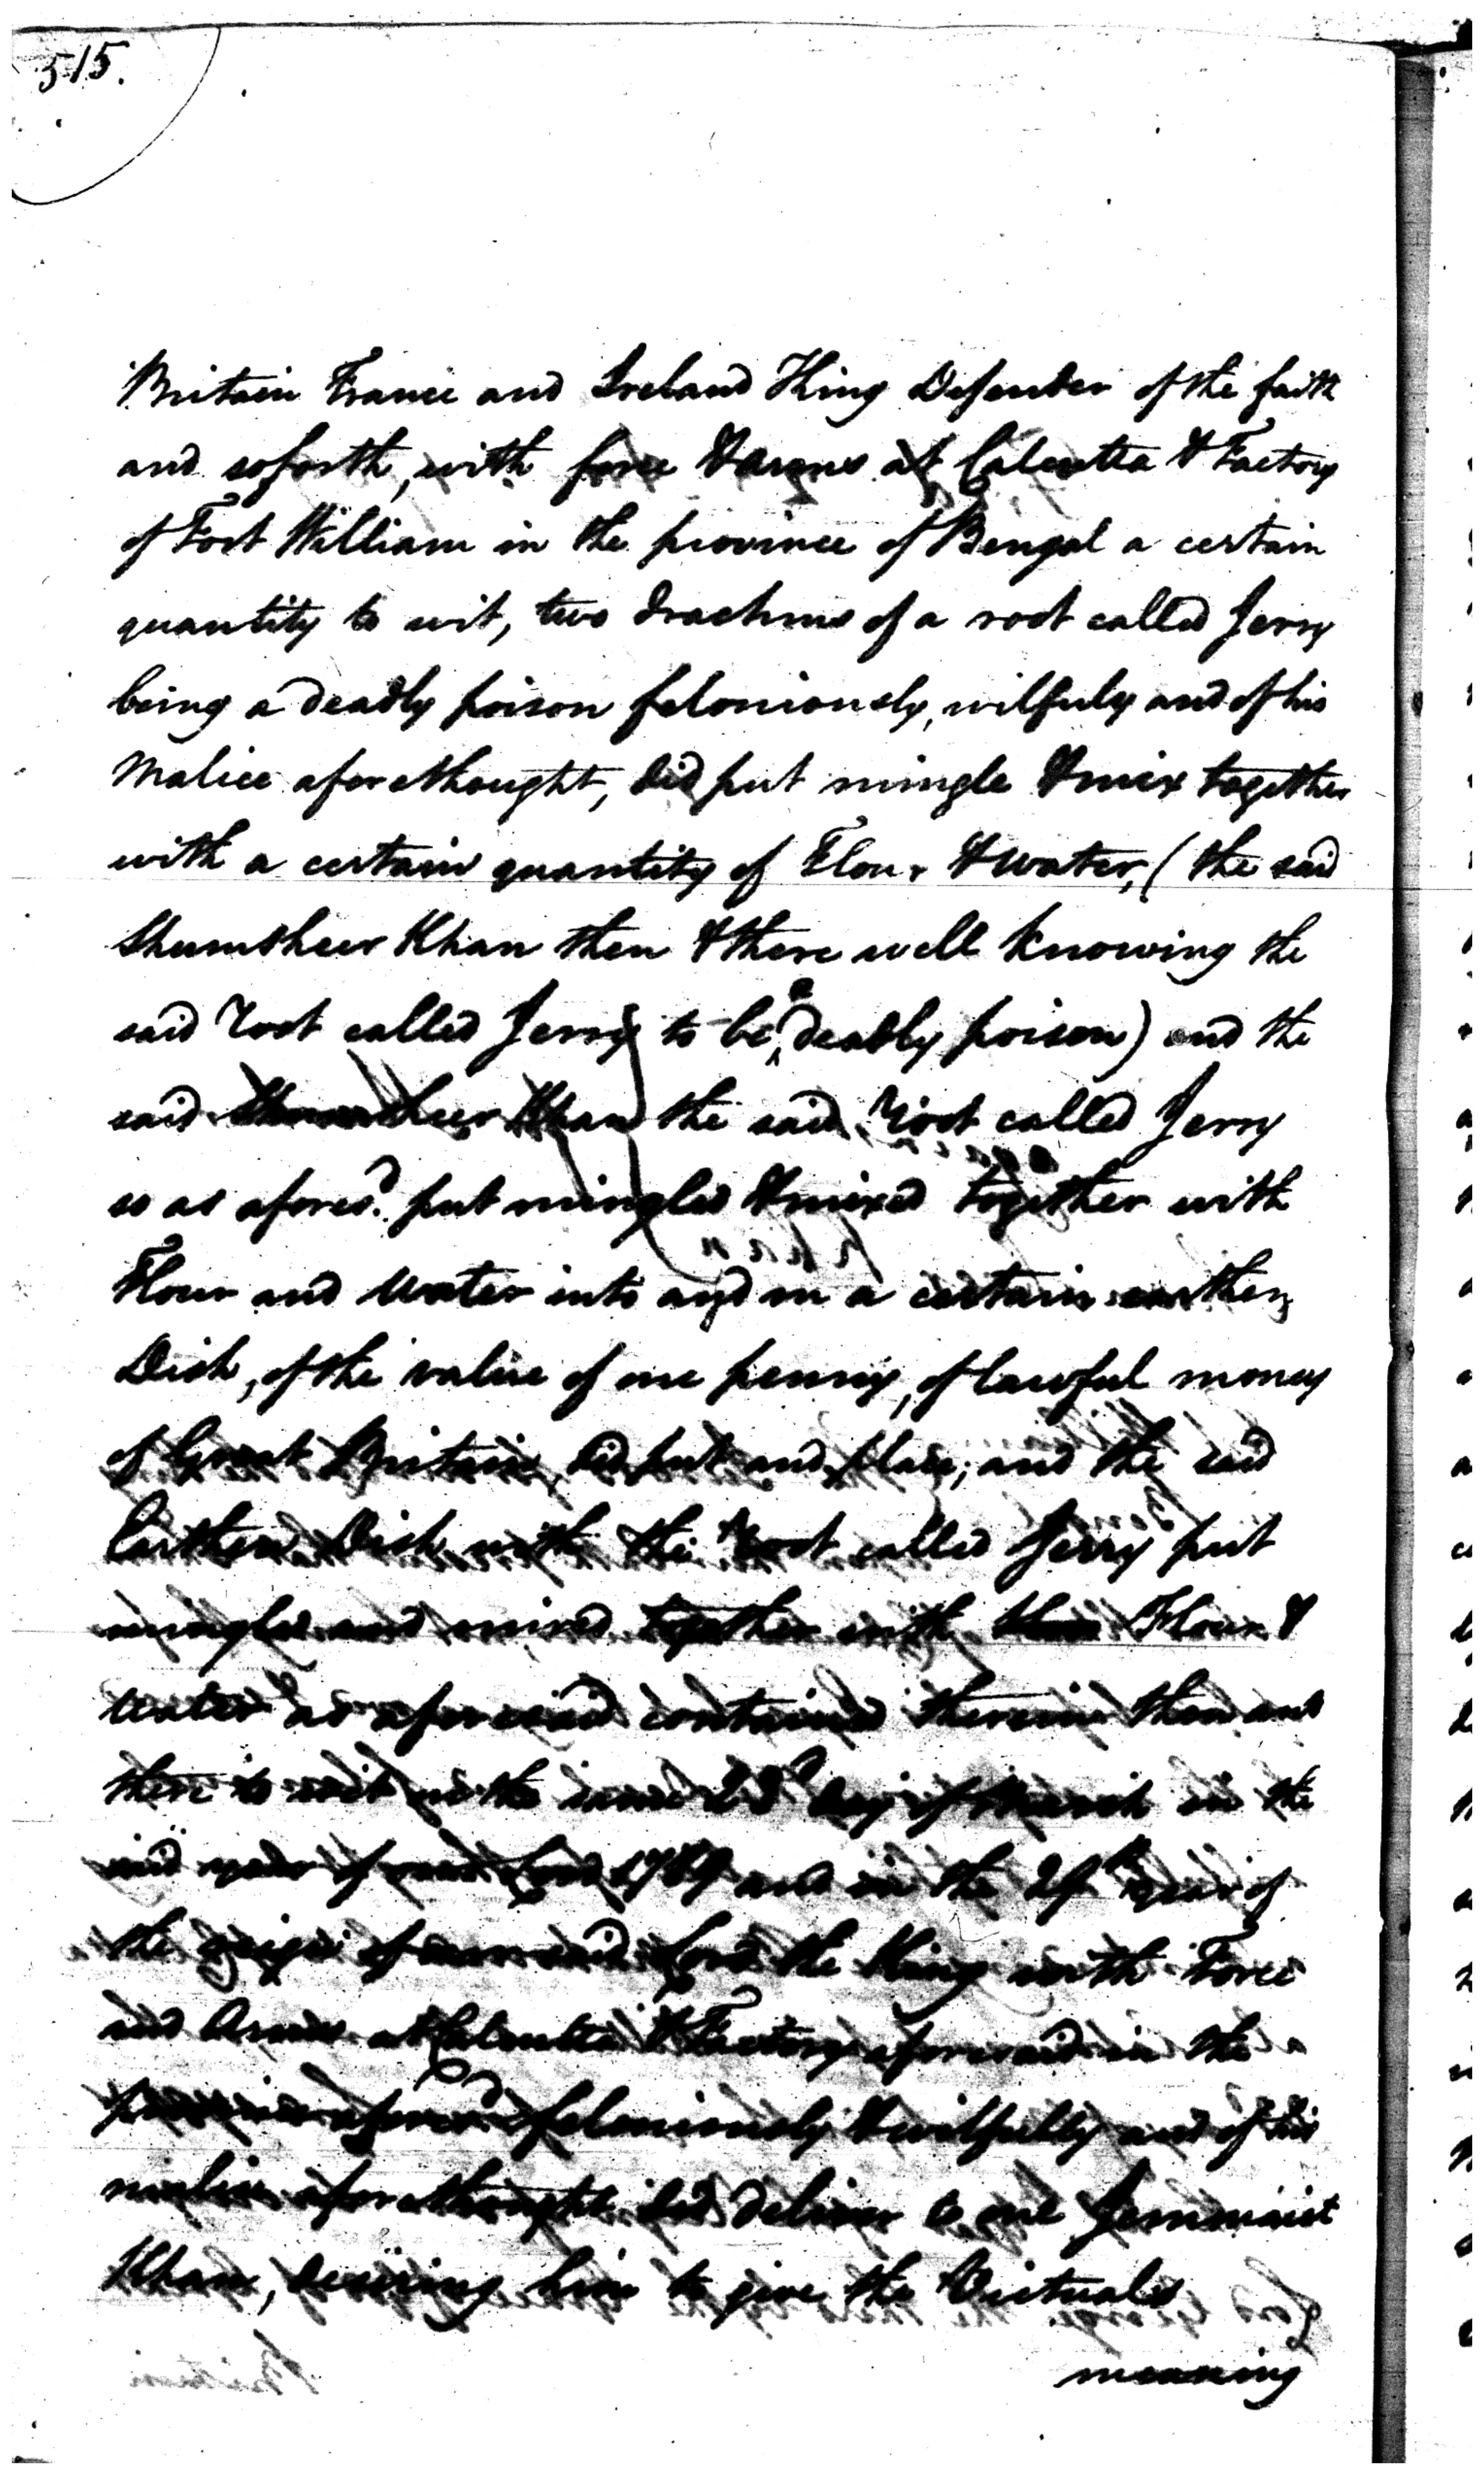 515.
Britain France and Ireland King Defender of the faith
and soforth, with force & arms at Calcutta & Factory
of Fort William in the province of Bengal a certain
quantity to wit, two drachms of a root called Jerry
being a deadly poison feloniously, wilfuly and of his
Malice aforethought, did put mingle & mix together
with a certain quantity of Flour & water, (the said
Shumsheer Khan then & there well knowing the
said Root called Jerry to be a deadly poison) and the
said Shumsheer Khan the said Root called Jerry
so as aforesd. put mingled & mixed together with
Flour and Water into and in a certain earthen
Dish, of the value of one penny, of lawful money
of Great Britain, did put and place; and the said
Earthen Dish with the Root called Jerry put
mingled and mixed together with Flour &
Water as aforesaid contained therein then and
there to wit on the same 23d day of March in the
said year of our Lord 1789 and in the 29th year of
the reign of our said Lord the King with Force
and Arms at Calcutta & Factory aforesaid in the
province aforesd feloniously & wilfully and of his
malice aforethought did deliver to one
Khan, desiring him to give the Victuals
meaning